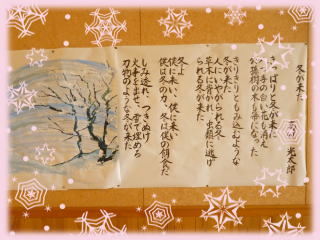 冬が来た
光太郎
きっぱりと冬が来た
手の白い花も消え
公孫樹の木も箒になった
きりきりともみ込むような
冬が来た
人にいやがられる冬
草木に背かれ、虫類に逃げ
られる冬が来た
冬よ
僕に来い、僕に来い
僕は冬の力、冬は僕の餌食だ
しみ透れ、つきぬけ
火事を出せ、雪で埋めろ
刃物のような冬が来た